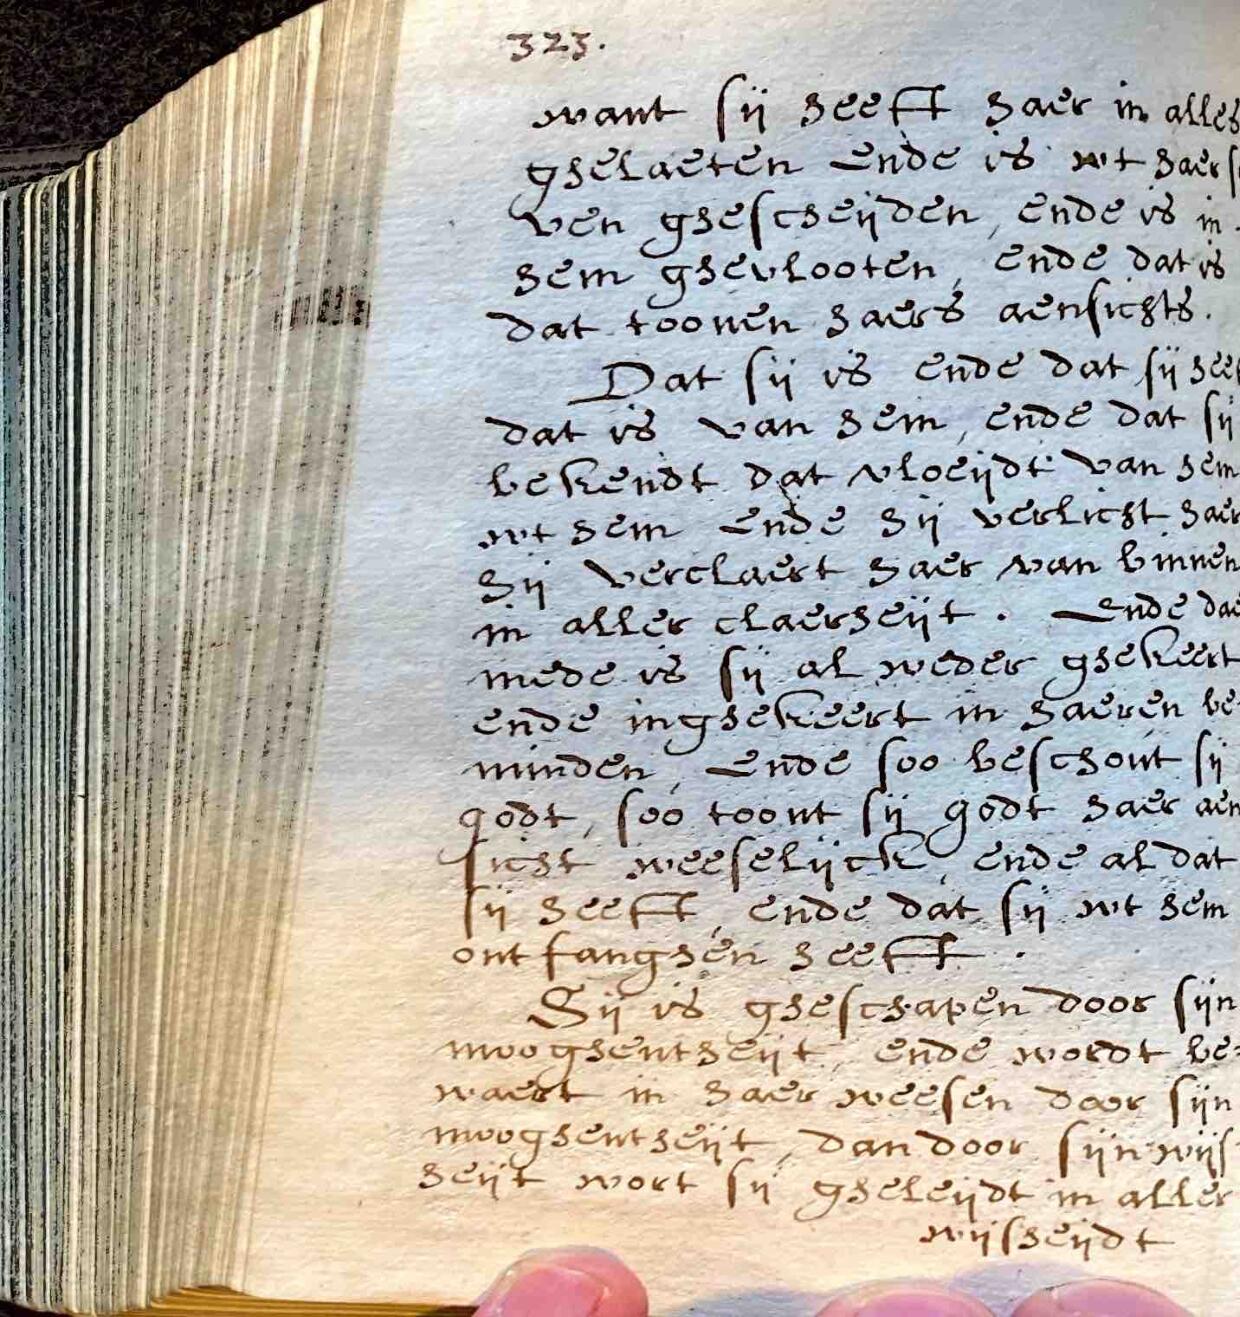 323.
want sij heeft haer in alles
ghelaeten ende is wt haers
ven ghescheijden, ende is in
hem ghevlooten, ende dat is
dat toonen haers aensichts.
Dat sij is ende dat sij heef
dat is van hem, ende dat sij
bekendt dat vloeijdt van hem
wt hem ende hij verlicht haer
hij verclaert haer van binnen
in aller claerheijt. Ende dae
mede is sij al weder ghekeert
ende inghekeert in haeren be-
minden, Ende soo beschout sij
godt, soo toont sij godt haer aen
sicht weeselijck, ende al dat
sij heeft, ende dat sij wt hem
ontfanghen heeft.
Sij is gheschapen door sijn
mooghentheijt, ende wordt be=
waert in haer weesen door sijn
mooghentheijt, dan door sijn wijs
heijt wort sij gheleijdt in aller
wijsheijdt